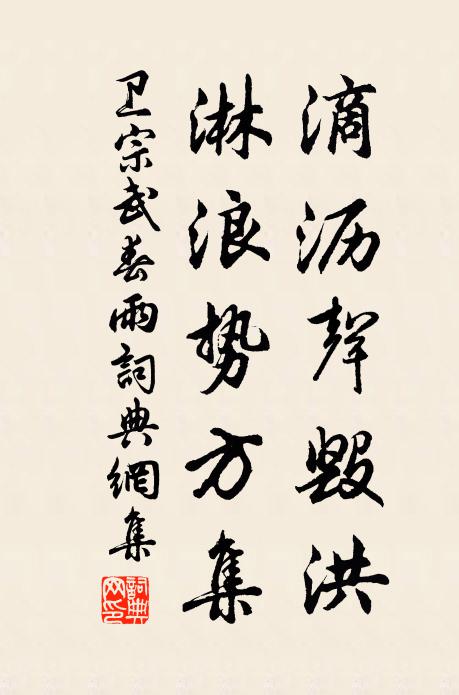 滴沥聲毀洪
淋浪势方集
卫宗武春雨詞典網集
詞典网印